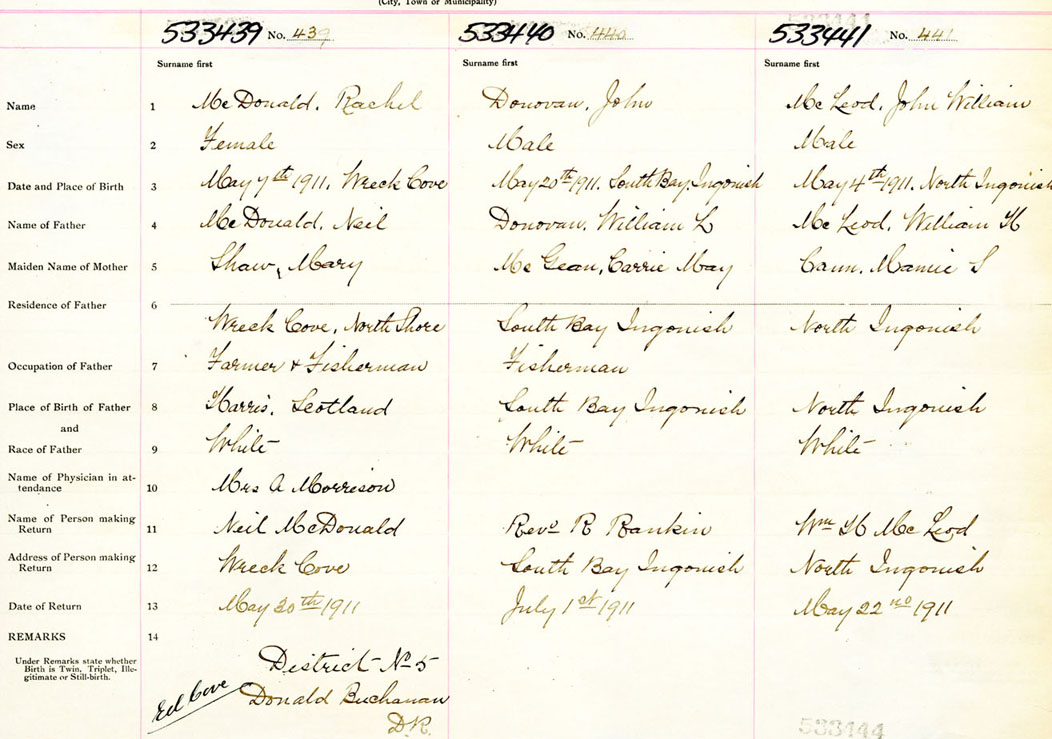 (City, Town or Municipality)
533439 No. 439 533440 No. 440 533441 No. 441
Surname first Surname first Surname first
Name 1 McDonald, Rachel Donovan, John McLeod, John William
Sex 2 Female Male Male
Date and Place of Birth 3 May 7th 1911, Wreck Cove May 20th 1911. South Bay, Ingonish May 4th 1911. North Ingonish
Name of Father 4 McDonald, Neil Donovan, William L McLeod, William H
Maiden Name of Mother 5 Shaw, Mary McGean, Carrie May Cann, Mamie S
Residence of Father 6
Wreck Cove, North Shore South Bay Ingonish North Ingonish
Occupation of Father 7 Farmer & Fisherman Fisherman
Place of Birth of Father 8 Harris, Scotland South Bay Ingonish North Ingonish
and
Race of Father 9 White White White
Name of Physician in at-
tendance 10 Mrs A Morrison
Name of Person making
Return 11 Neil McDonald Revd R Rankin Wm H McLeod
Address of Person making
Return 12 Wreck Cove South Bay Ingonish North Ingonish
Date of Return 13 May 30th 1911 July 1st 1911 May 22nd 1911
REMARKS 14
Under Remarks state whether
Birth is Twin, Triplet, Ille-
gitimate or Still-birth.
District No 5
Cove Donald Buchanan
D.R.
533444